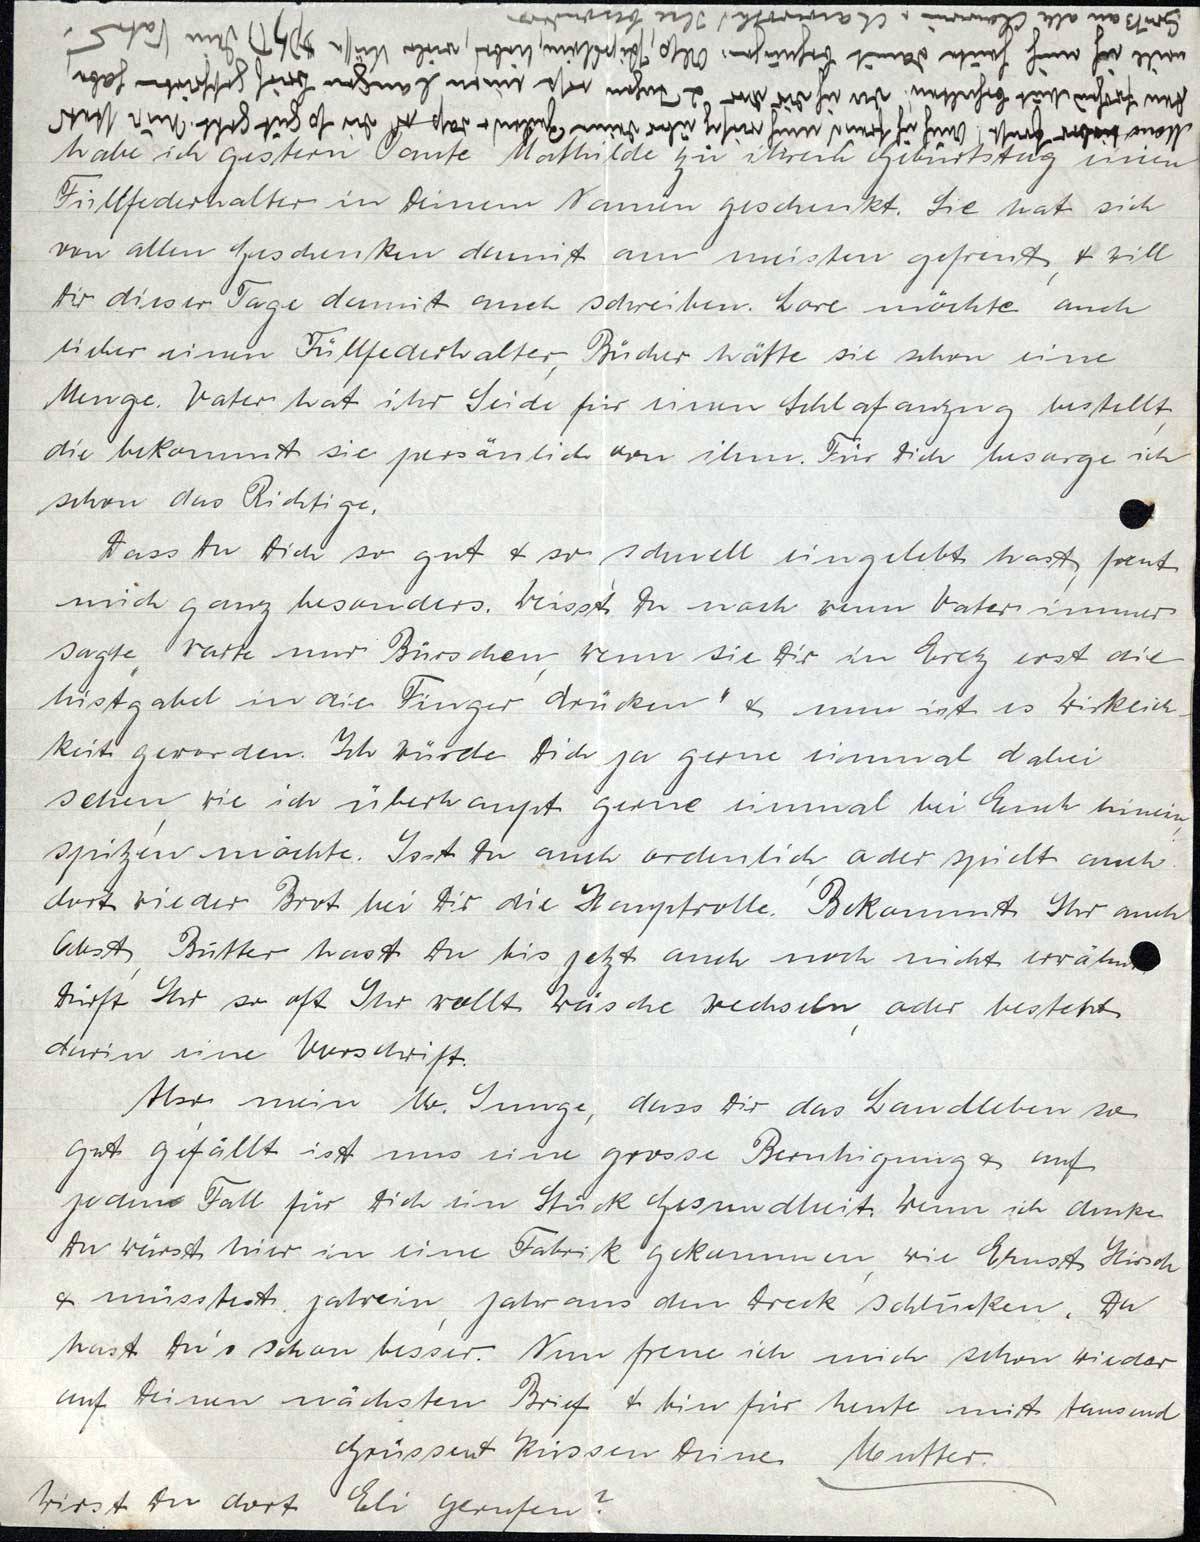 habe ich gestern Tante Mathilde zu ihrem Geburtstag einen
Füllfederhalter in Deinem Namen geschenkt. Sie hat sich
von allen Geschenken damit am meisten gefreut, & will
Dir dieser Tage damit auch schreiben. Lore möchte auch
lieber einen Füllfederhalter, Bücher hätte sie schon eine
Menge. Vater hat ihr Seide für einen Schlafanzug bestellt,
die bekommt sie persönlich von ihm. Für Dich besorge ich
schon das Richtige.
Dass Du Dich so gut & so schnell eingelebt hast, freut
mich ganz besonders. Weisst Du noch wenn Vater immer
sagte „Warte nur Bürschen, wenn sie Dir in Erez erst die
Mistgabel in die Finger drücken" & nun ist es Wirklich-
keit geworden. Ich würde Dich ja gerne einmal dabei
sehen, wie ich überhaupt gerne einmal bei Euch hinein
spitzen möchte. Isst Du auch ordentlich, oder spielt auch
dort wieder Brot bei Dir die Hauptrolle. Bekommt Ihr auch
Obst, Butter hast Du bis jetzt auch noch nicht erwähnt
Dürft Ihr so oft Ihr wollt Wäsche wechseln, oder besteht
darin eine Vorschrift.
Also mein lb. Junge, dass Dir das Landleben so
gut gefällt ist uns eine grosse Beruhigung & auf
jeden Fall für Dich ein Stück Gesundheit. Wenn ich denke
Du wärst hier in eine Fabrik gekommen, wie Ernst Hirsch
& müsstest jahrein, jahraus den Dreck schlucken. Da
hast Du's schon besser. Nun freue ich mich schon wieder
auf Deinen nächsten Brief & bin für heute mit tausend
Grüssen & Küssen Deine Mutter.
Wirst Du dort Eli gerufen?